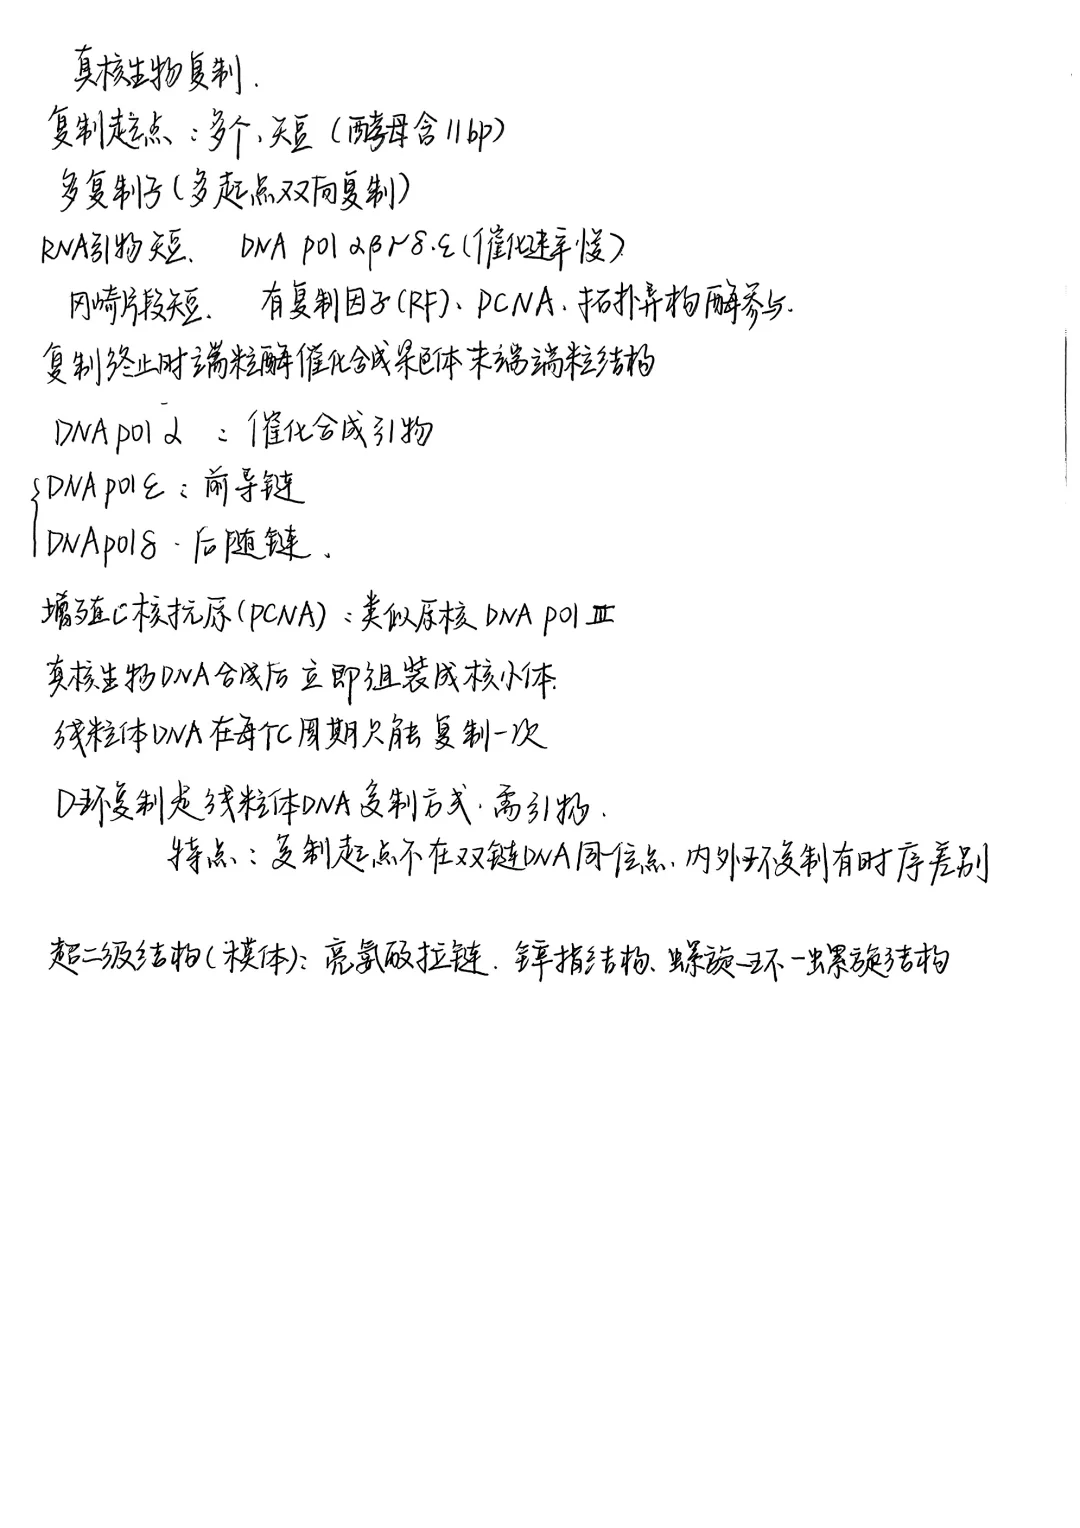 真核生物复制.
复制起点：多个、短（酵母含11bp）
多复制子（多起点双向复制）
RNA引物短、 DNA pol αβγδ.ε（催化速率慢）
冈崎片段短. 有复制因子(RF)、PCNA、拓扑异构酶参与.
复制终止时端粒酶催化合成染色体末端端粒结构
DNA pol α ：催化合成引物
DNA pol ε：前导链
DNA pol δ. 后随链、
增殖C核抗原(PCNA)：类似原核 DNA pol Ⅲ
真核生物DNA合成后 立即组装成核小体.
线粒体DNA在每个C周期只能复制一次
D-环复制是线粒体DNA复制方式. 需引物.
特点：复制起点不在双链DNA同一位点、内外环复制有时序差别
超二级结构（模体）：亮氨酸拉链. 锌指结构、螺旋-环-螺旋结构